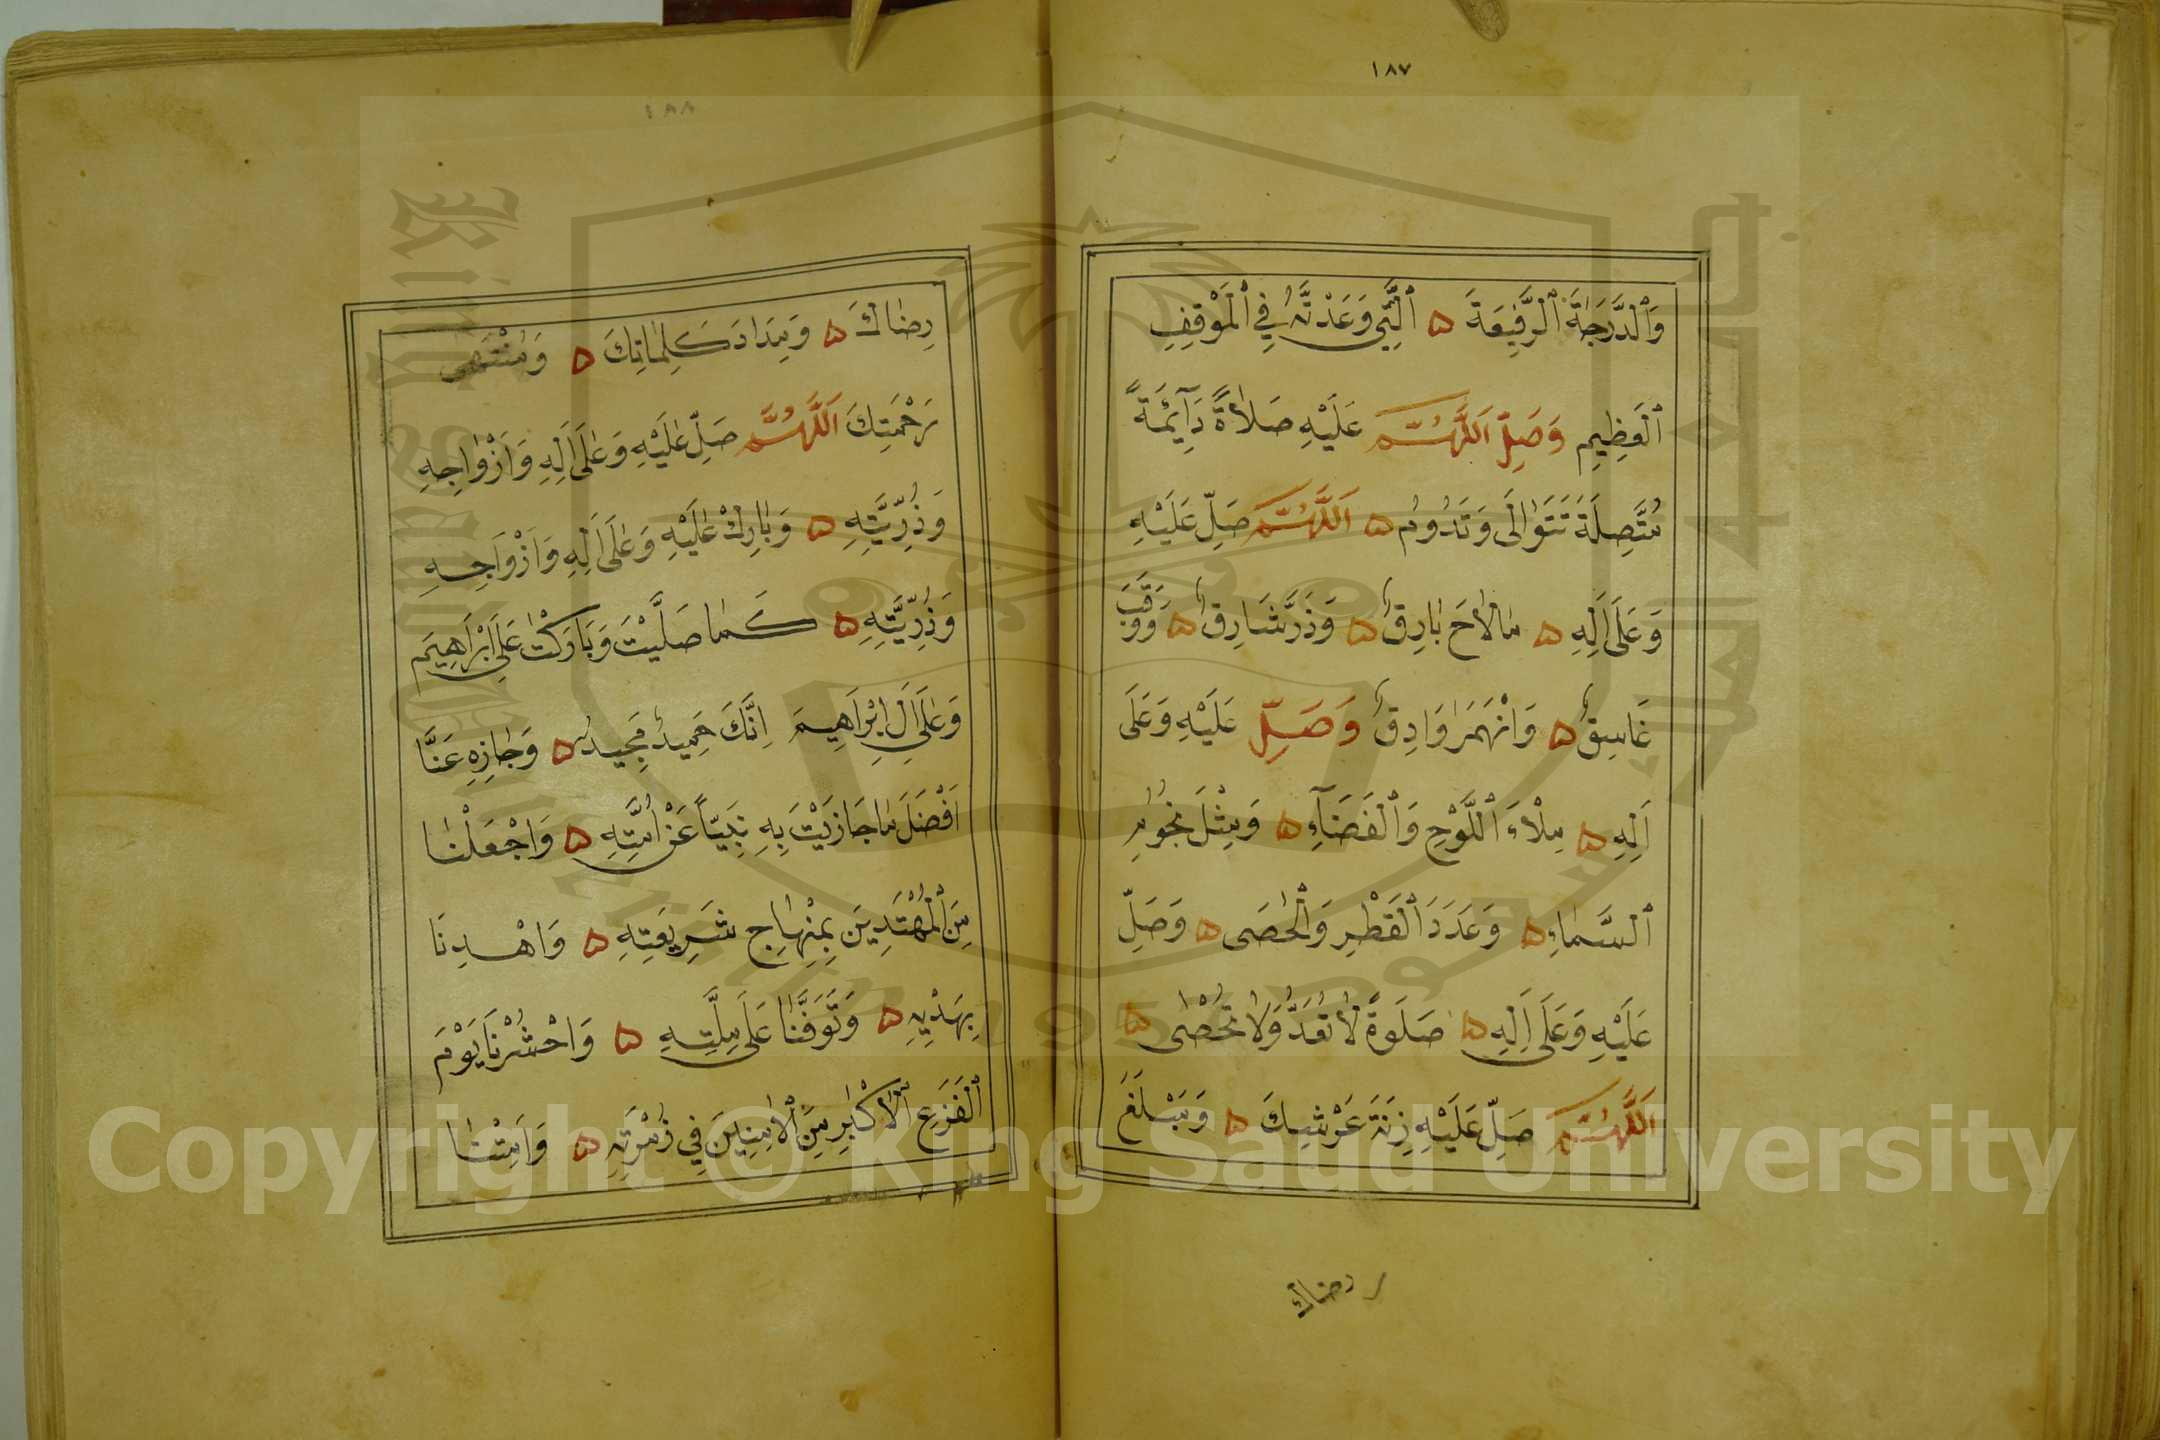 ١٨٧
وَٱلدَّرَجَةَ ٱلرَّفِيعَةَ ۵ ٱلَّتِي وَعَدْتَّهُ فِي ٱلْمَوْقِفِ
ٱلْعَظِيمِ وَصَلِّ اَللّٰهُمَّ عَلَيْهِ صَلَاةً دَآئِمَةً
مُتَّصِلَةً تَتَوَالَى وَتَدُومُ ۵ اَللّٰهُمَّ صَلِّ عَلَيْهِ
وَعَلَى اَلِهِ ۵ مَالَاحَ بَارِقٌ ۵ وَذَرَّ شَارِقٌ ۵ وَوَقَبَ
غَاسِقٌ ۵ وَانْهَمَرَ وَادِقٌ وَصَلِّ عَلَيْهِ وَعَلَى
اَلِهِ ۵ مِلْءَ ٱللَّوْحِ وَٱلْفَضَآءِ ۵ وَمِثْلَ نُجُومِ
ٱلسَّمَاءِ ۵ وَعَدَدَ ٱلْقَطْرِ وَالْحَصَى ۵ وَصَلِّ
عَلَيْهِ وَعَلَى اَلِهِ ۵ صَلَوةً لَا تُعَدُّ وَلَا تُحْصَى ۵
اَللّٰهُمَّ صَلِّ عَلَيْهِ زِنَةَ عَرْشِكَ ۵ وَمَبْلَغَ
رضاك
١٨٨
رِضَاكَ ۵ وَمِدَادَ كَلِمَاتِكَ ۵ وَمُنْتَهَى
رَحْمَتِكَ اَللّٰهُمَّ صَلِّ عَلَيْهِ وَعَلَى اَلِهِ وَاَزْوَاجِهِ
وَذُرِّيَّتِهِ ۵ وَبَارِكْ عَلَيْهِ وَعَلَى اَلِهِ وَاَزْوَاجِهِ
وَذُرِّيَّتِهِ ۵ كَمَا صَلَّيْتَ وَبَارَكْتَ عَلَى اِبْرَاهِيمَ
وَعَلَى اَلِ اِبْرَاهِيمَ اِنَّكَ حَمِيدٌ مَجِيدٌ ۵ وَجَازِهِ عَنَّا
اَفْضَلَ مَا جَازَيْتَ بِهِ نَبِيًّا عَنْ اُمَّتِهِ ۵ وَاجْعَلْنَا
مِنَ ٱلْمُهْتَدِينَ بِمِنْهَاجِ شَرِيعَتِهِ ۵ وَاهْدِنَا
بِهَدْيِهِ ۵ وَتَوَفَّنَا عَلَى مِلَّتِهِ ۵ وَاحْشُرْنَا يَوْمَ
ٱلْفَزَعِ ٱلْاَكْبَرِ مِنَ ٱلْاٰمِنِينَ فِي زُمْرَتِهِ ۵ وَاَمِتْنَا
Copyright © King Saud University